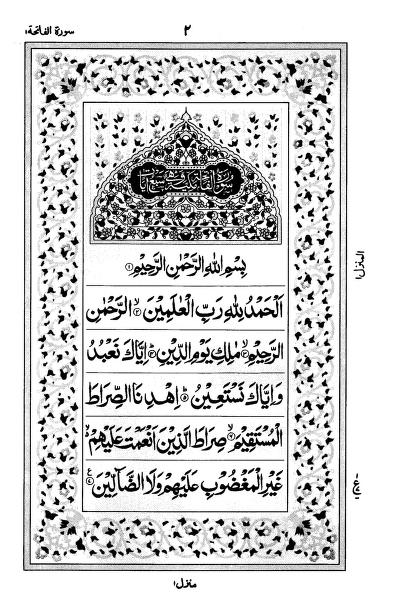 سورة الفاتحة ١
٢
سورة الفاتحة مكية وهي سبع آيات
بِسْمِ اللهِ الرَّحْمٰنِ الرَّحِيْمِ ۝١
اَلْحَمْدُ لِلهِ رَبِّ الْعٰلَمِيْنَ ۝٢ الرَّحْمٰنِ
الرَّحِيْمِ ۝٣ مٰلِكِ يَوْمِ الدِّيْنِ ۝٤ اِيَّاكَ نَعْبُدُ
وَاِيَّاكَ نَسْتَعِيْنُ ۝٥ اِهْدِنَا الصِّرَاطَ
الْمُسْتَقِيْمَ ۝٦ صِرَاطَ الَّذِيْنَ اَنْعَمْتَ عَلَيْهِمْ
غَيْرِ الْمَغْضُوْبِ عَلَيْهِمْ وَلَا الضَّآلِّيْنَ ۝٧
المنزل ١
منزل ١